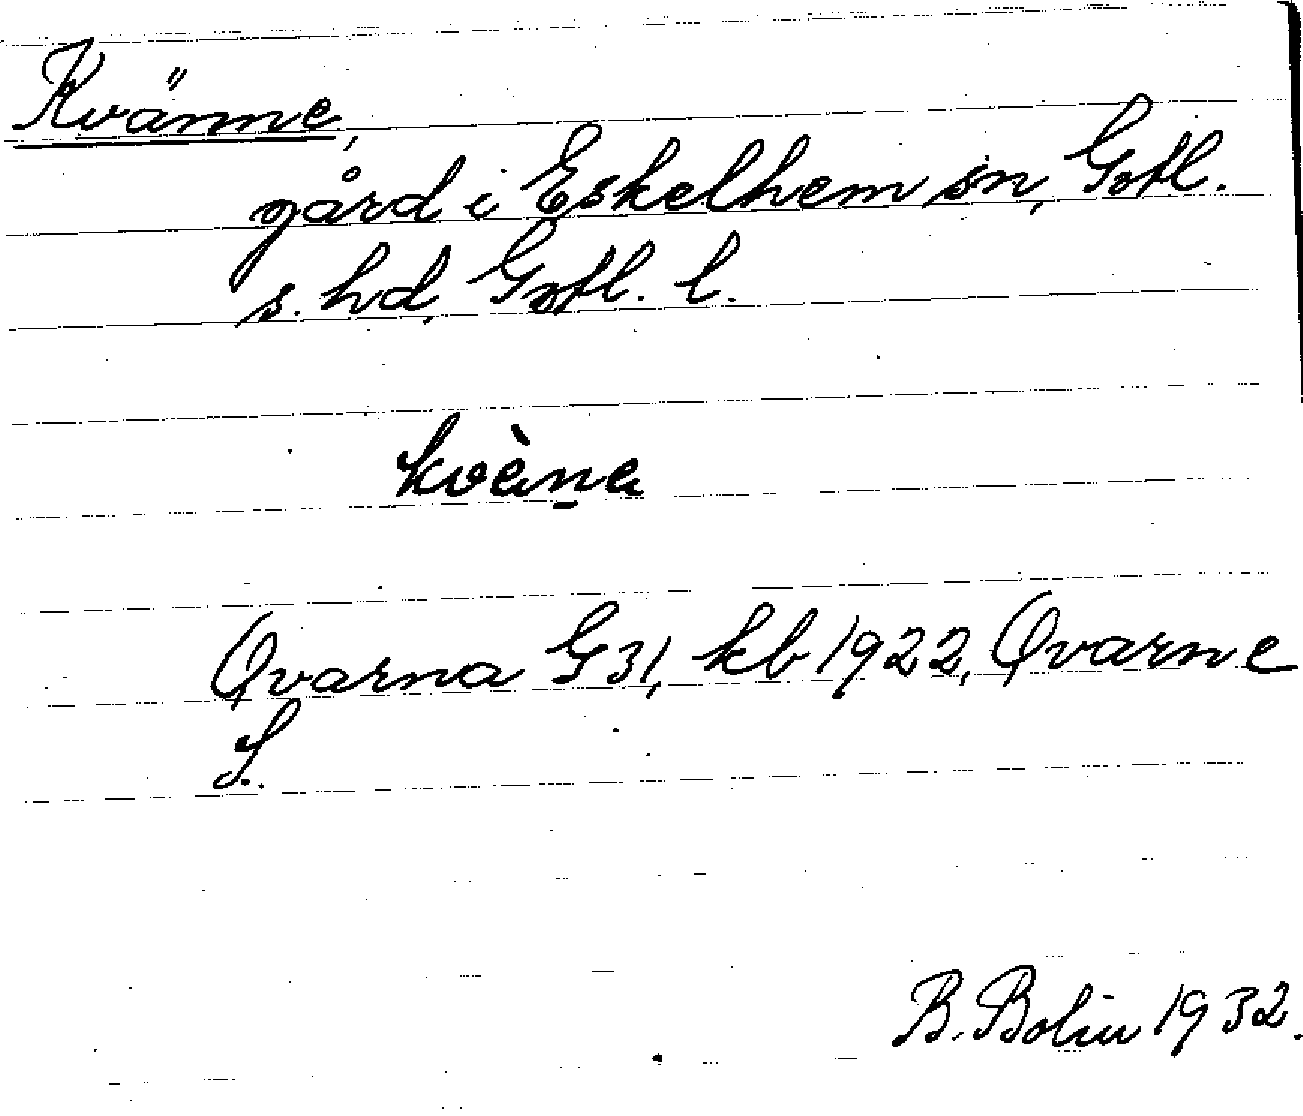 Kvänne,
gård i Eskelhem sn, Gotl.
s. hd, Gotl. l.
kvä̀ṉa
Qvarna G 31, kb 1922, Qvarne
S.
B. Bolin 1932.